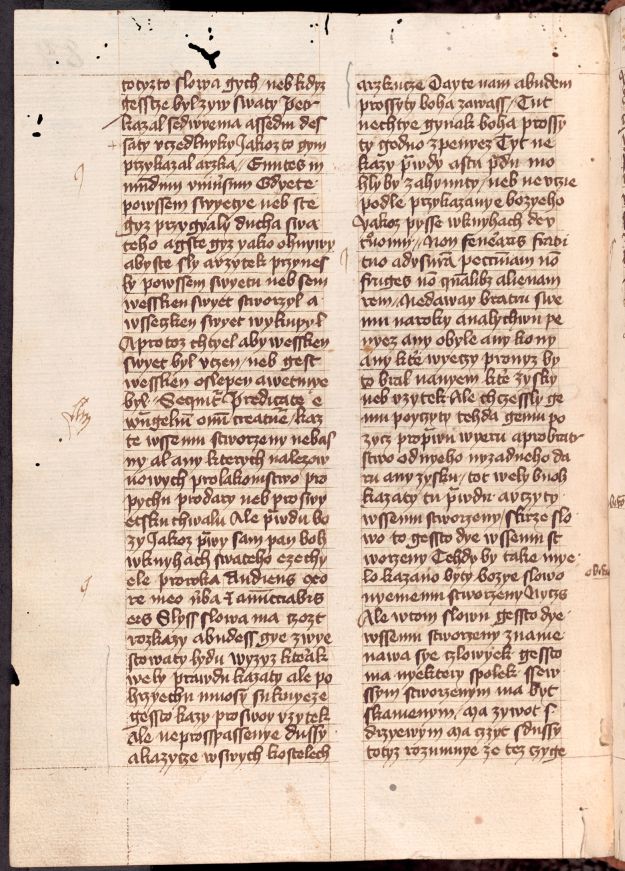 totyzto slowa gych / neb kdyz
gessтze byl zyw swaty Petr
kazal sedmyema assedm des
saty vczedlnyky Jakoz to gym
przykazal arzka / Euntes in
mundum vniusum Gdyete
powssem swyetye neb ste
gyz przygyaly ducha swa
teho agste gyz yako ohnywy
abyste sly avzytek przynes
ly powssem swyetu neb sem
wessken swyet stworzyl a
wssegken swyet wykupyl
Aprotoz chtyel aby wessken
swyet byl vczen / neb gest
wessken oslepen awetmye
byl / Sequit Predicate e
wngeliu omi creature / kaz
te wssemu stworzeny nebas
ny al any kterych nalezow
nowych prolakomstwo pro
pychu prodary neb pro swy
etsku chwalu Ale prwdu bo
zy Jakoz prwy sam pan boh
wknyhach swateho ezechy
ele proroka Audiens ex o
re meo vba et annucciabis
eis Slyss slowa ma z vst
rozkazy abudess gye zwye
stowaty lydu wyzyz kterak
wely prawdu kazaty ale po
hrzyechu mnosy su knyeze
gessto kazy / proswoy vzytek
Ale neprosspassenye dussy
akazycze wswych kostelech
arzkucze Dayte nam abudem
prossyty boha zawass / Tut
nechtye gynak boha prossy
ty godno zpenyez Tyt ne
kazy prwdy astu prdu mo
hly by zahynuty / neb nevczie
podle przykazanye bozyeho
yakoz pysse wknyhach dev
tronomy / Non feneraris fratri
tuo ad vsuram pecuniam no
fruges no qualibz alienam
rem / Nedaway bratru swe
mu naroky analychwu pe
nyez any obyle any kony
any kte wyeczy pronyz by
to bral nanyem kte zysky
neb vzytek Ale chczessly ge
mu poyczyty tehda gemu po
zycz proprwu wyeru aprobratr
stwo odnyeho nyzadneho da
ru any zysku / tot wely buoh
kazaty tu prwdu avczyty
wssemu stworzeny / skrze slo
wo to gessto dye wssemu st
worzeny Tehdy by take mye
lo kazano byty bozye slowo
nyememu stworzeny Nycz
Ale wtom slowu gessto dye
wssemu stworzeny zname
nawa sye czlowyek gessto
ma nyektery spolek ssew
ssym stworzenym ma byt
skamenym / Ma zywot s
drzyewym Ma czyt sdussy
totyz rozumnye ze tez czyge